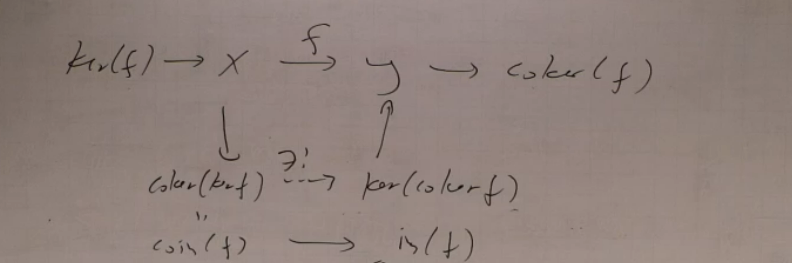 f
ker(f) → X → y → coker(f)
∃!
coker(kerf) ⇢ ker(cokerf)
"
coim(f) → im(f)